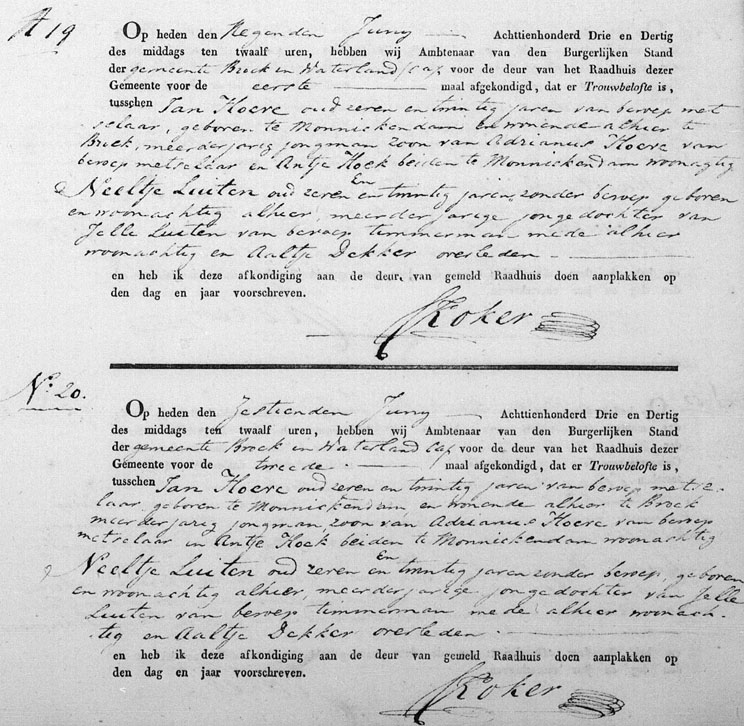 N 19
Op heden den Negenden Juny Achttienhonderd Drie en Dertig
des middags ten twaalf uren, hebben wij Ambtenaar van den Burgerlijken Stand
der gemeente Broek in Waterland Cap voor de deur van het Raadhuis dezer
Gemeente voor de eerste maal afgekondigd, dat er Trouwbelofte is,
tusschen Jan Hoeve oud zeven en twintig jaren van beroep met
selaar, geboren te Monnickendam en wonende alhier te
Broek, meerderjarig jongman zoon van Adrianus Hoeve van
beroep metselaar en Antje Hoek beiden te Monnickendam woonagtig
En
Neeltje Luiten oud zeven en twintig jaren, zonder beroep geboren
en woonachtig alhier, meerderjarige jongedochter van
Jelle Luiten van beroep timmerman mede alhier
woonachtig en Aaltje Dekker overleden
en heb ik deze afkondiging aan de deur van gemeld Raadhuis doen aanplakken op
den dag en jaar voorschreven.
Koker
No. 20.
Op heden den Zestienden Juny Achttienhonderd Drie en Dertig
des middags ten twaalf uren, hebben wij Ambtenaar van den Burgerlijken Stand
der gemeente Broek in Waterland Cap voor de deur van het Raadhuis dezer
Gemeente voor de tweede maal afgekondigd, dat er Trouwbelofte is,
tusschen Jan Hoeve oud zeven en twintig jaren van beroep metse-
laar, geboren te Monnickendam, en wonende alhier te Broek
meerderjarig jongman, zoon van Adrianus Hoeve van beroep
metselaar en Antje Hoek beiden te Monnickendam woonachtig
En
Neeltje Luiten oud zeven en twintig jaren zonder beroep, geboren
en woonachtig alhier, meerderjarige jongedochter van Jelle
Luiten van beroep timmerman mede alhier woonach-
tig en Aaltje Dekker overleden
en heb ik deze afkondiging aan de deur van gemeld Raadhuis doen aanplakken op
den dag en jaar voorschreven.
Koker